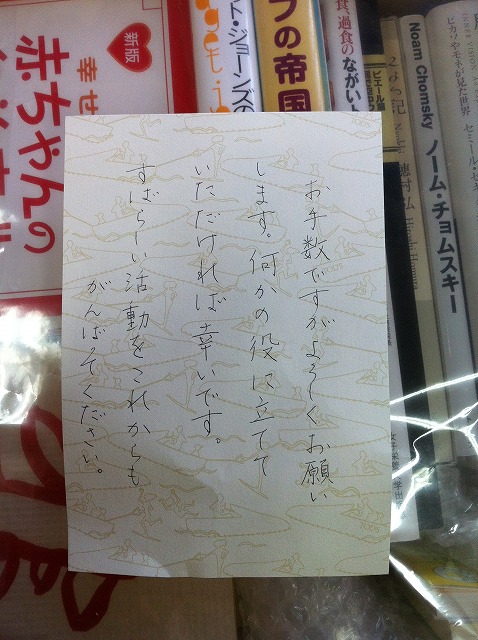 お手数ですがよろしくお願い
します。何かの役に立てて
いただければ幸いです。
すばらしい活動をこれからも
がんばってください。
新版
幸せ
赤ちゃんの
ト・ジョーンズの
フの帝国
食、過食のながい、
Noam Chomsky ノーム・チョムスキー
ピカソやモネが見た世界
INNER VISION
セミール・ゼ
穂村弘